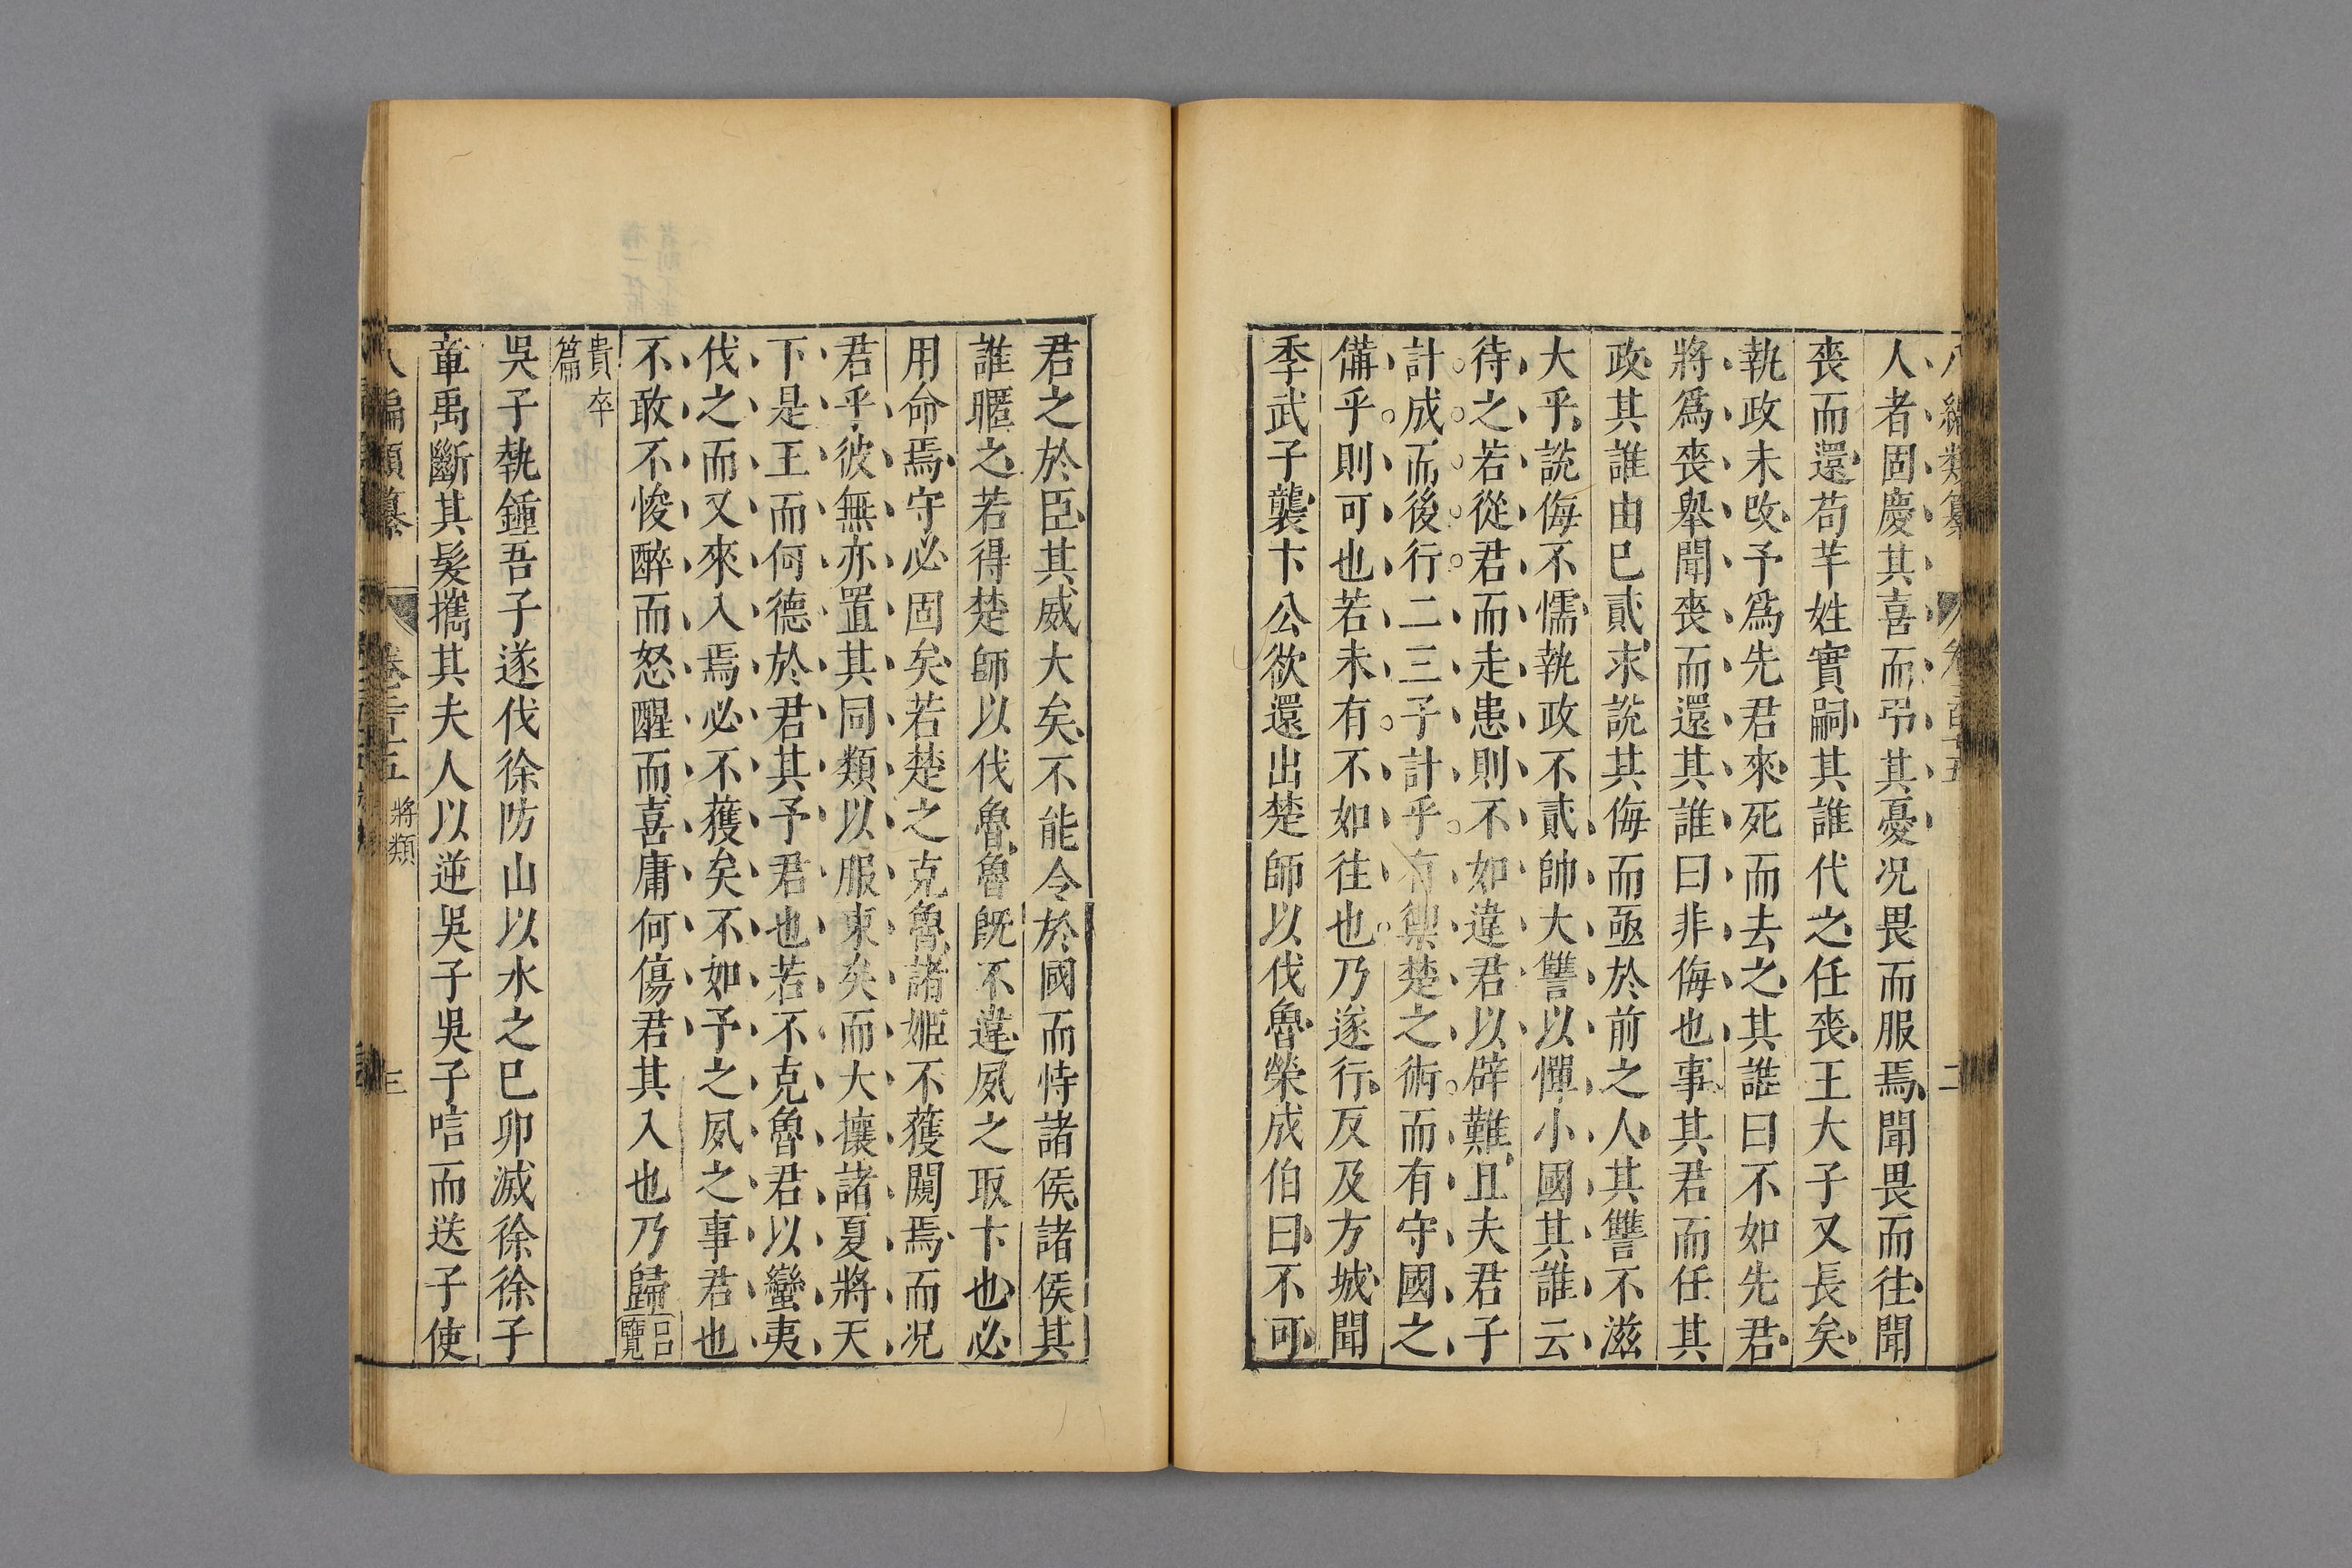 人者固慶其喜而弔其憂况畏而服焉聞畏而往聞
喪而還苟芊姓實嗣其誰代之任喪王大子又長矣
執政未改予爲先君來死而去之其誰曰不如先君
將爲喪舉聞喪而還其誰曰非侮也事其君而任其
政其誰由已貳求說其侮而亟於前之人其讐不滋
大乎說侮不懦執政不貳帥大讐以憚小國其誰云
待之若從君而走患則不如違君以辟難且夫君子
計成而後行二三子計乎有禦楚之術而有守國之
備乎則可也若未有不如往也乃遂行反及方城聞
季武子襲卞公欲還出楚師以伐魯榮成伯曰不可
君之於臣其威大矣不能令於國而恃諸侯諸侯其
誰暱之若得楚師以伐魯魯旣不違夙之取卞也必
用命焉守必固矣若楚之克魯諸姬不獲闚焉而况
君乎彼無亦置其同類以服東矣而大攘諸夏將天
下是王而何德於君其予君也若不克魯君以蠻夷
伐之而又來入焉必不獲矣不如予之夙之事君也
不敢不悛醉而怒醒而喜庸何傷君其入也乃歸呂覽
貴卒
篇
吳子執鍾吾子遂伐徐防山以水之巳卯滅徐徐子
章禹斷其髮攜其夫人以逆吳子吳子唁而送子使
八編類纂 卷 五 將類 三